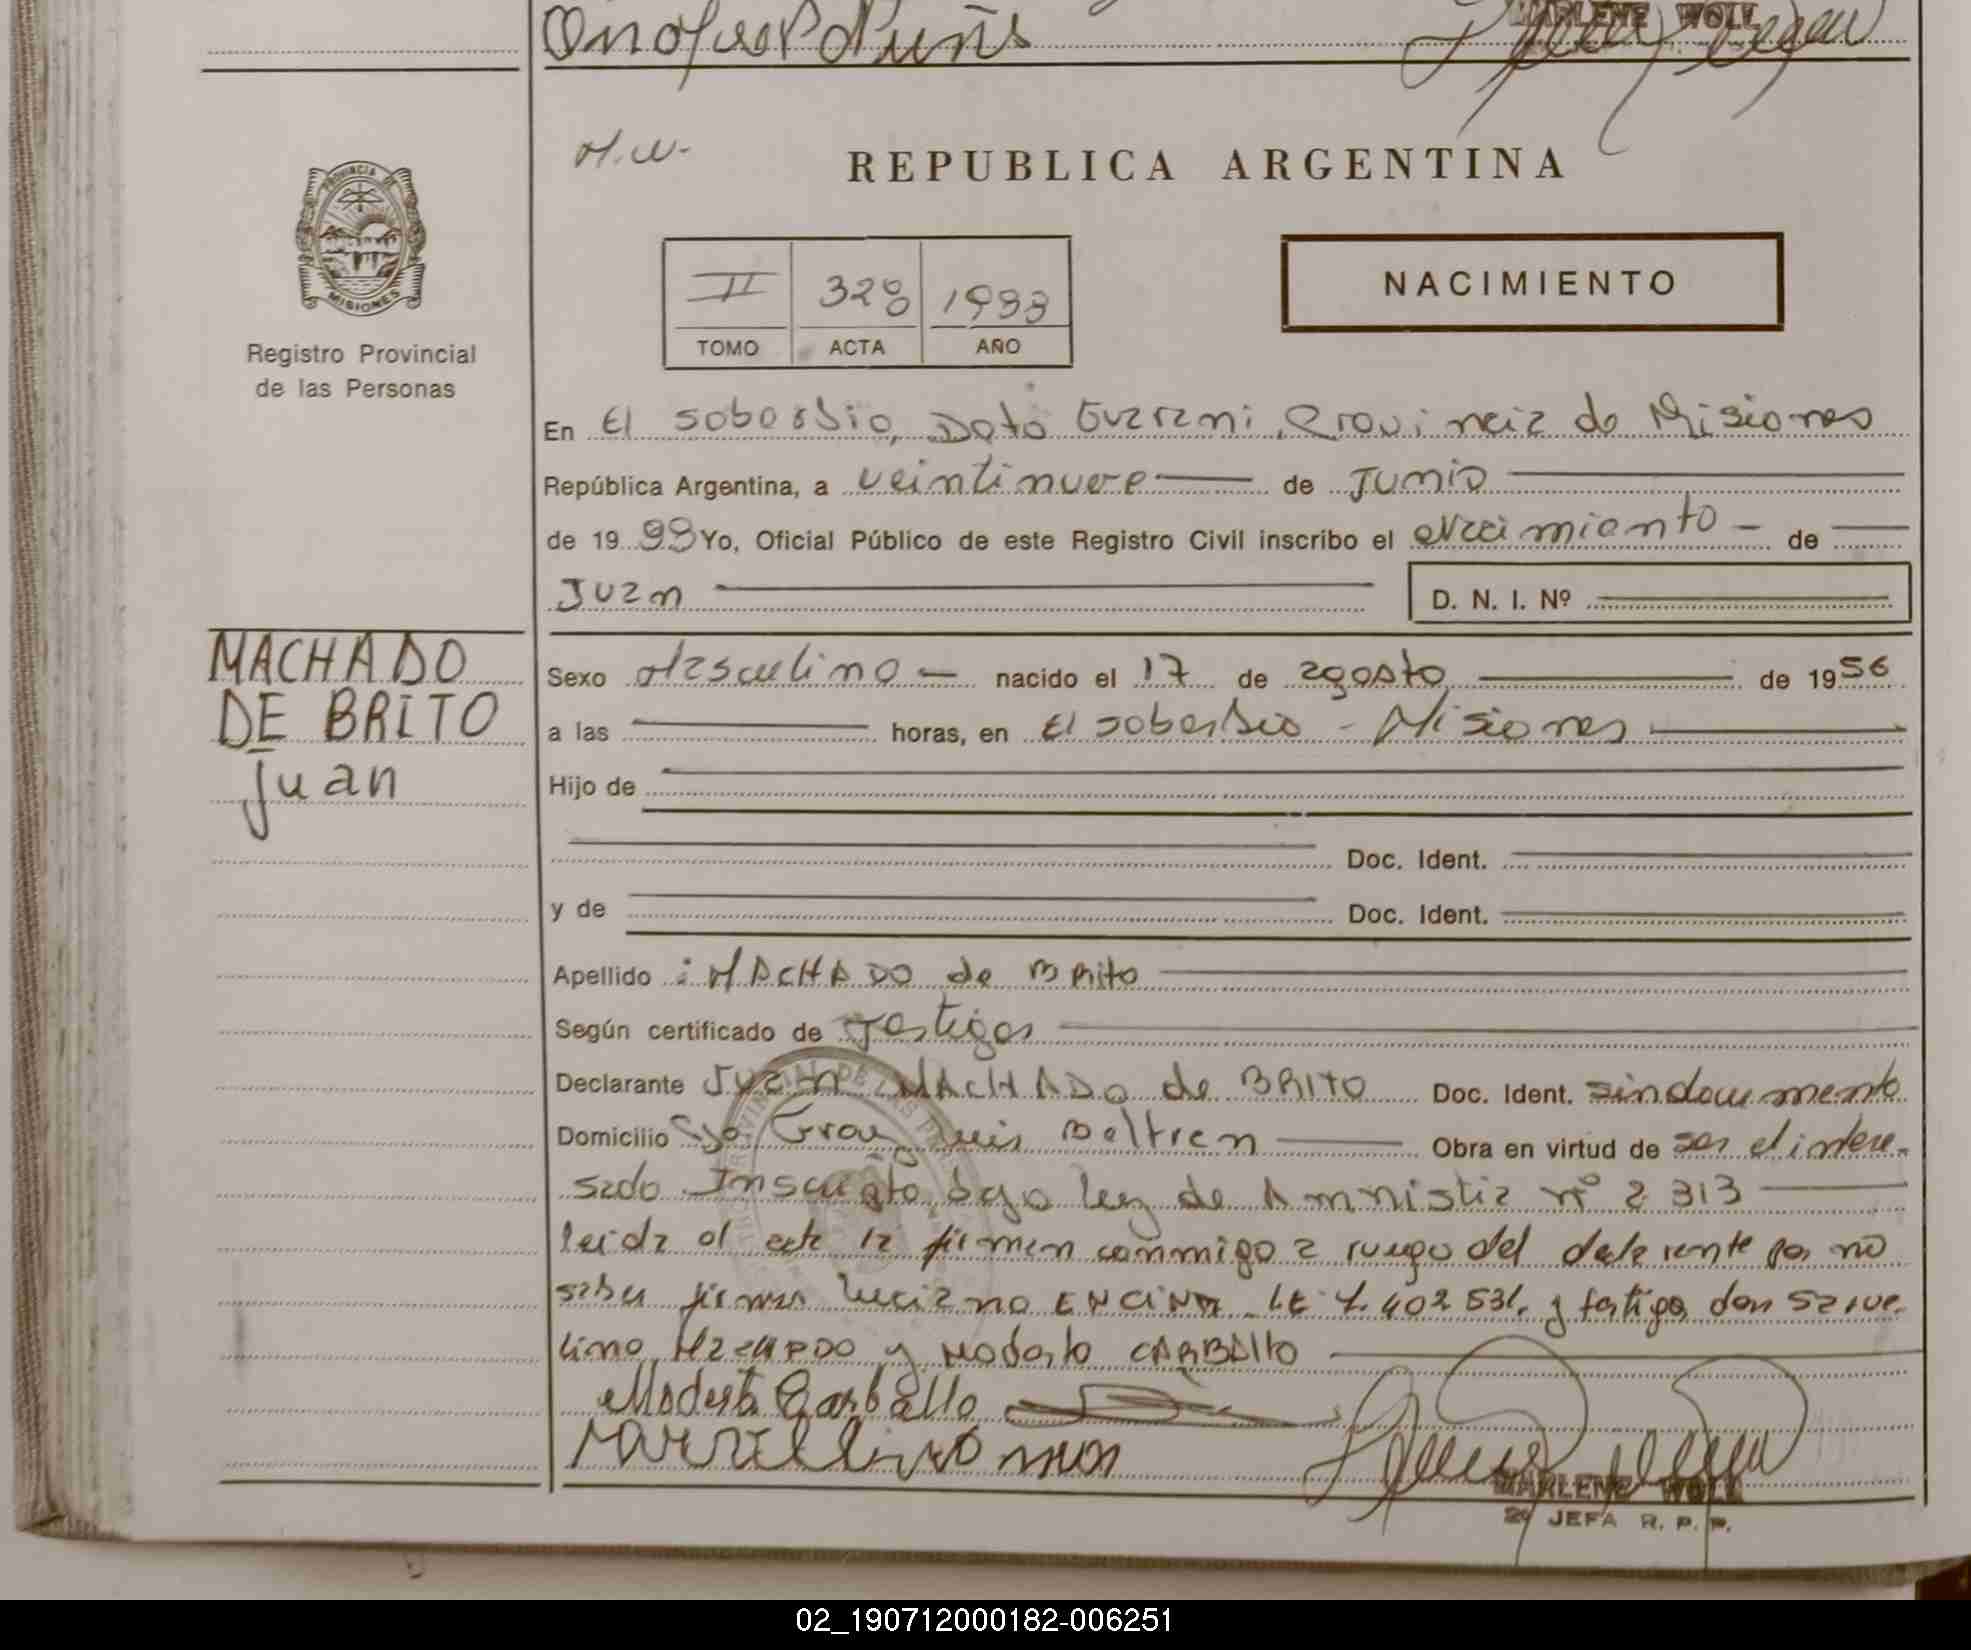 MARLENE WOLL
M.W.
REPUBLICA ARGENTINA
PROVINCIA DE
MISIONES
Registro Provincial
de las Personas
II 328 1993
TOMO ACTA AÑO
NACIMIENTO
En El soberbio, Dpto Guarani, Provincia de Misiones
República Argentina, a veintinueve de Junio
de 1993 Yo, Oficial Público de este Registro Civil inscribo el Nacimiento de
Juan D. N. I. Nº
MACHADO
DE BRITO
Juan
Sexo Masculino nacido el 17 de agosto de 1956
a las horas, en El soberbio - Misiones
Hijo de
Doc. Ident.
y de Doc. Ident.
Apellido : MACHADO de BRito
Según certificado de Testigos
Declarante Juan MACHADO de BRITO Doc. Ident. sin documento
Domicilio Fray Luis Beltren Obra en virtud de ser el intere-
sado Inscripto bajo ley de Amnistia nº 2 313
leida el acta la firman conmigo a ruego del declarante por no
saber firmar Luciano ENCINA LE 7.402 531, y testigos don
lino Machado y Modesto CARBAllo
Modesto Carballo
MARLENE WOLL
2º JEFA R. P. P.
02_190712000182-006251